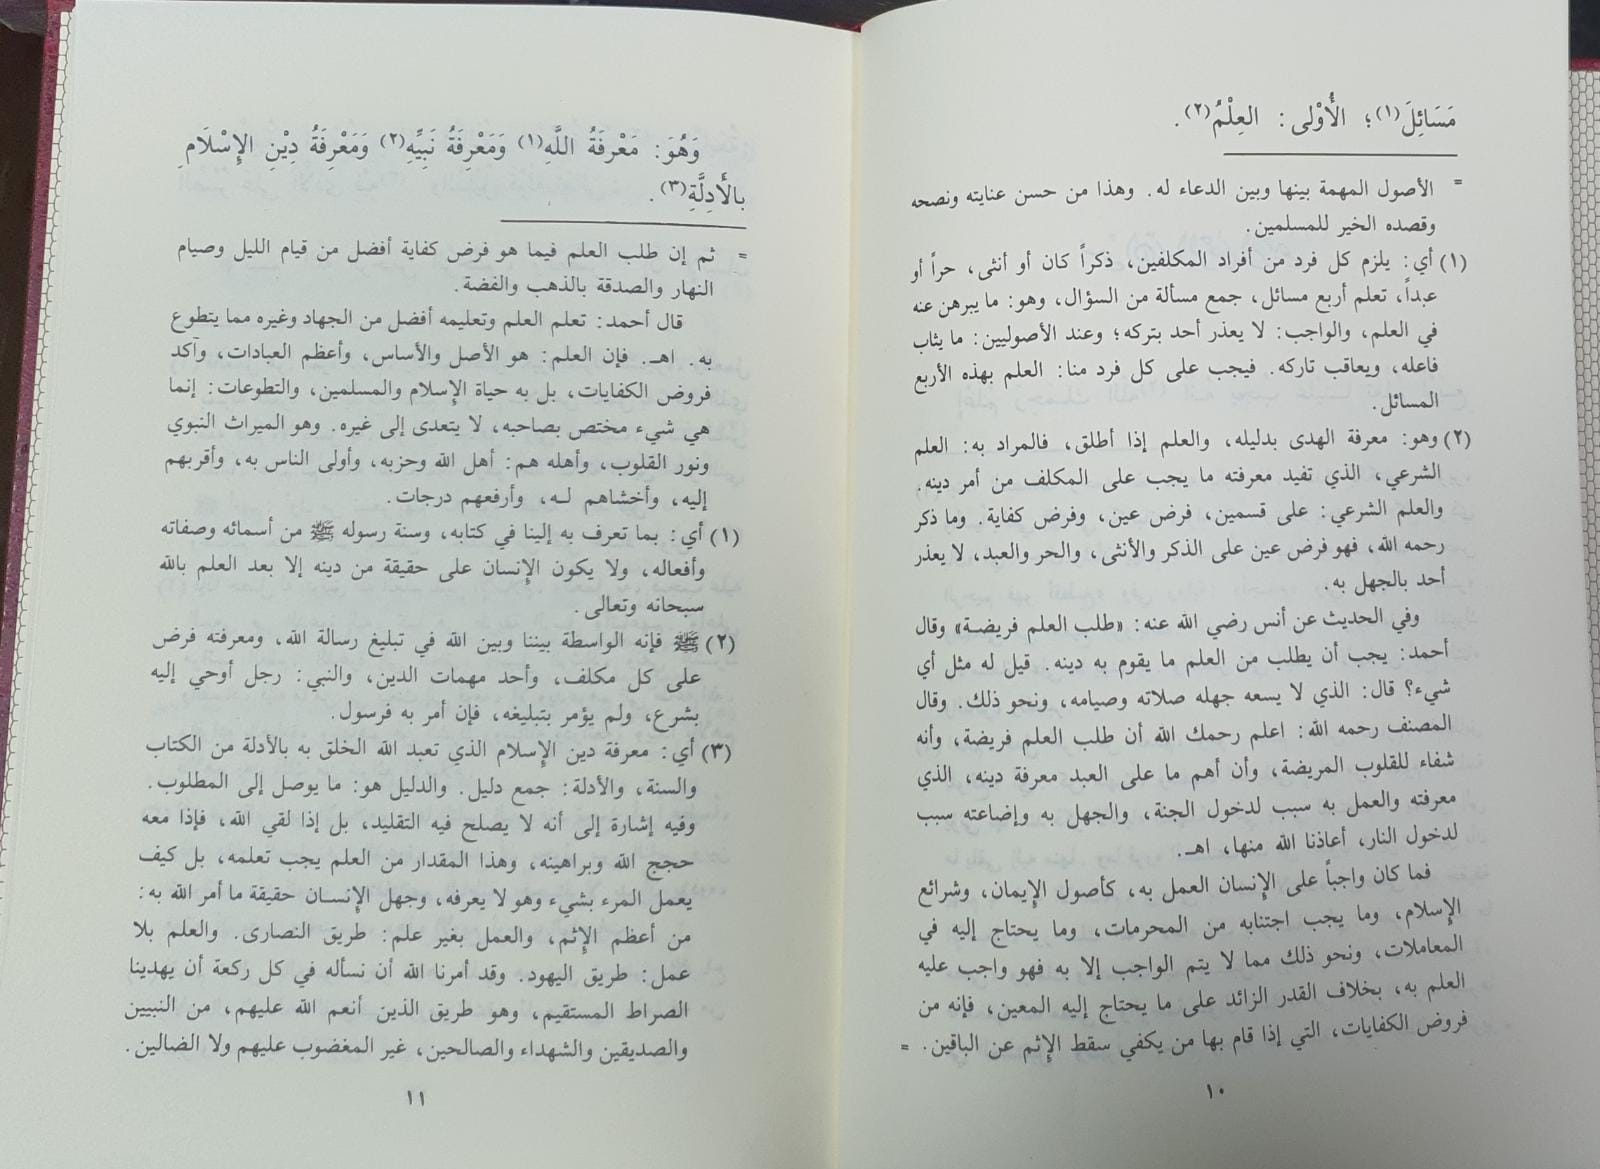 مَسَائِلَ(١)؛ الأُوْلى: العِلْمُ(٢).
= الأصول المهمة بينها وبين الدعاء له. وهذا من حسن عنايته ونصحه
وقصده الخير للمسلمين.
(١) أي: يلزم كل فرد من أفراد المكلفين، ذكراً كان أو أنثى، حراً أو
عبداً، تعلم أربع مسائل، جمع مسألة من السؤال، وهو: ما يبرهن عنه
في العلم، والواجب: لا يعذر أحد بتركه؛ وعند الأصوليين: ما يثاب
فاعله، ويعاقب تاركه. فيجب على كل فرد منا: العلم بهذه الأربع
المسائل.
(٢) وهو: معرفة الهدى بدليله، والعلم إذا أطلق، فالمراد به: العلم
الشرعي، الذي تفيد معرفته ما يجب على المكلف من أمر دينه.
والعلم الشرعي: على قسمين، فرض عين، وفرض كفاية. وما ذكر
رحمه الله، فهو فرض عين على الذكر والأنثى، والحر والعبد، لا يعذر
أحد بالجهل به.
وفي الحديث عن أنس رضي الله عنه: «طلب العلم فريضة» وقال
أحمد: يجب أن يطلب من العلم ما يقوم به دينه. قيل له مثل أي
شيء؟ قال: الذي لا يسعه جهله صلاته وصيامه، ونحو ذلك. وقال
المصنف رحمه الله: اعلم رحمك الله أن طلب العلم فريضة، وأنه
شفاء للقلوب المريضة، وأن أهم ما على العبد معرفة دينه، الذي
معرفته والعمل به سبب لدخول الجنة، والجهل به وإضاعته سبب
لدخول النار، أعاذنا الله منها، اهـ.
فما كان واجباً على الإنسان العمل به، كأصول الإيمان، وشرائع
الإسلام، وما يجب اجتنابه من المحرمات، وما يحتاج إليه في
المعاملات، ونحو ذلك مما لا يتم الواجب إلا به فهو واجب عليه
العلم به، بخلاف القدر الزائد على ما يحتاج إليه المعين، فإنه من
فروض الكفايات، التي إذا قام بها من يكفي سقط الإثم عن الباقين. =
١٠
وَهُوَ: مَعْرِفَةُ اللَّهِ(١) وَمَعْرِفَةُ نَبِيِّهِ(٢) وَمَعْرِفَةُ دِيْنِ الإِسْلَامِ
بالأَدِلَّةِ(٣).
= ثم إن طلب العلم فيما هو فرض كفاية أفضل من قيام الليل وصيام
النهار والصدقة بالذهب والفضة.
قال أحمد: تعلم العلم وتعليمه أفضل من الجهاد وغيره مما يتطوع
به. اهـ. فإن العلم: هو الأصل والأساس، وأعظم العبادات، وآكد
فروض الكفايات، بل به حياة الإسلام والمسلمين، والتطوعات: إنما
هي شيء مختص بصاحبه، لا يتعدى إلى غيره. وهو الميراث النبوي
ونور القلوب، وأهله هم: أهل الله وحزبه، وأولى الناس به، وأقربهم
إليه، وأخشاهم لـه، وأرفعهم درجات.
(١) أي: بما تعرف به إلينا في كتابه، وسنة رسوله ﷺ من أسمائه وصفاته
وأفعاله، ولا يكون الإنسان على حقيقة من دينه إلا بعد العلم بالله
سبحانه وتعالى.
(٢) ﷺ فإنه الواسطة بيننا وبين الله في تبليغ رسالة الله، ومعرفته فرض
على كل مكلف، وأحد مهمات الدين، والنبي: رجل أوحي إليه
بشرع، ولم يؤمر بتبليغه، فإن أمر به فرسول.
(٣) أي: معرفة دين الإسلام الذي تعبد الله الخلق به بالأدلة من الكتاب
والسنة، والأدلة: جمع دليل. والدليل هو: ما يوصل إلى المطلوب.
وفيه إشارة إلى أنه لا يصلح فيه التقليد، بل إذا لقي الله، فإذا معه
حجج الله وبراهينه، وهذا المقدار من العلم يجب تعلمه، بل كيف
يعمل المرء بشيء وهو لا يعرفه، وجهل الإنسان حقيقة ما أمر الله به:
من أعظم الإثم، والعمل بغير علم: طريق النصارى. والعلم بلا
عمل: طريق اليهود. وقد أمرنا الله أن نسأله في كل ركعة أن يهدينا
الصراط المستقيم، وهو طريق الذين أنعم الله عليهم، من النبيين
والصديقين والشهداء والصالحين، غير المغضوب عليهم ولا الضالين.
١١